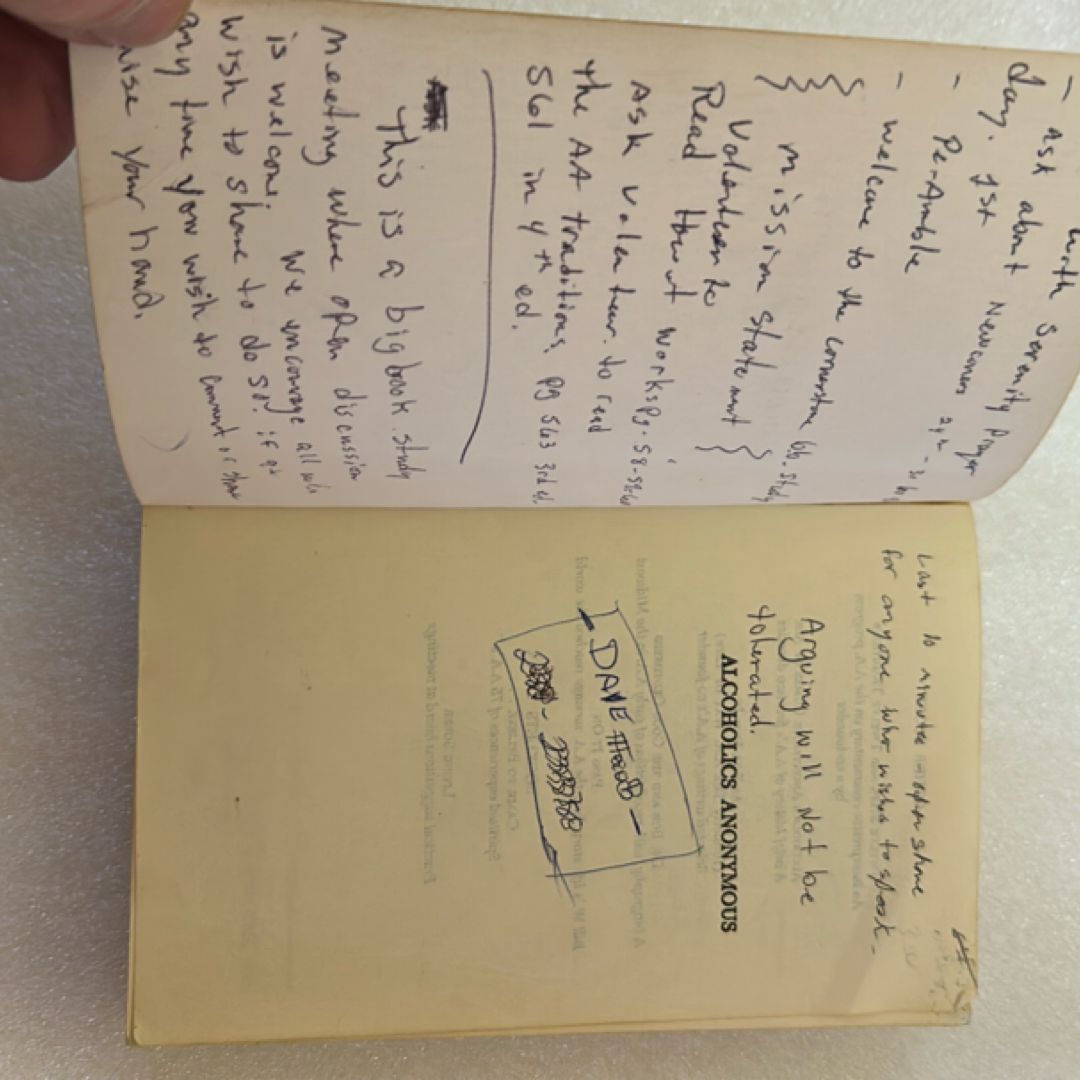 with Serenity Prayer
- ask about Newcomers
day. 1st
- Pe-Amble
- welcome to the cornerstone bb. study
mission statement
Volenteer to
Read How it works pg. 58-
Ask Volenteer. to read
the AA traditions. pg 563 3rd ed.
561 in 4th ed.
This is a big book study
meeting where open discussion
is welcome. we encourage all who
wish to share to do so. if at
any time you wish to comment or share
raise your hand.
Last 10 minutes open share
for anyone who wishes to speak -
Arguing will Not be
tolerated.
ALCOHOLICS ANONYMOUS
DAVE